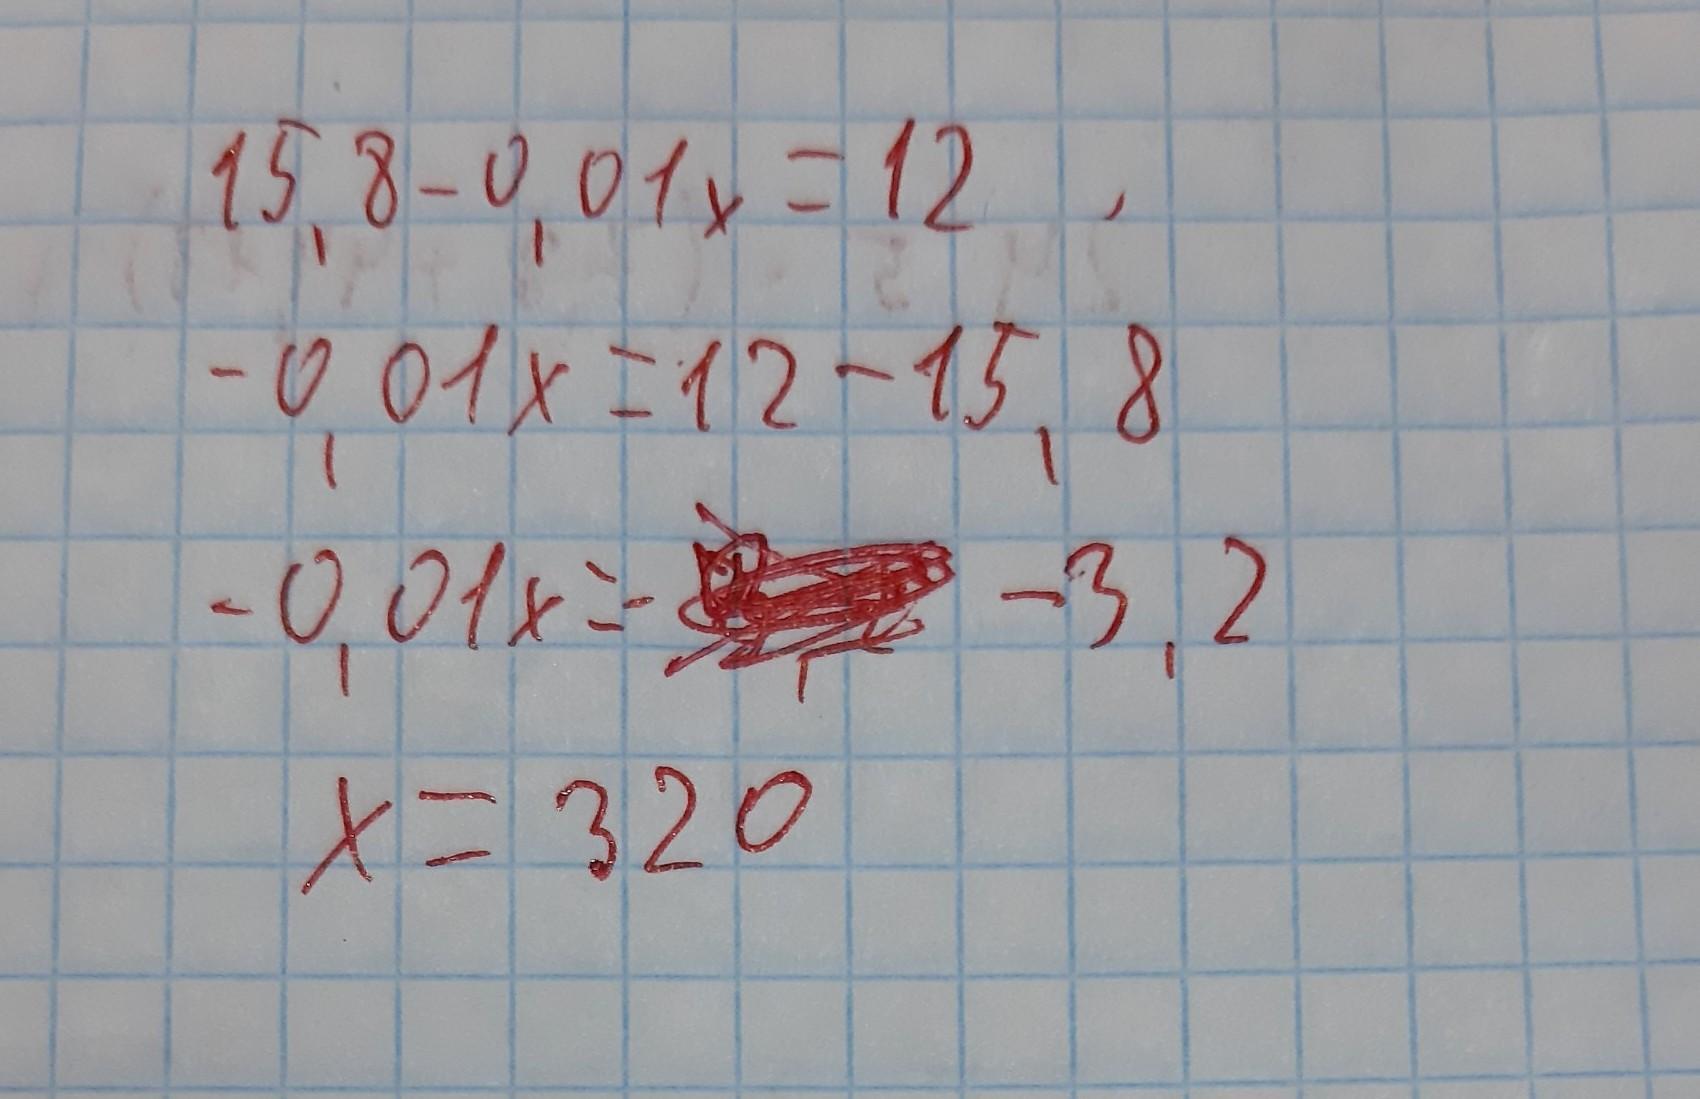 15,8-0,01x=12
-0,01x=12-15,8
-0,01x= -3,2
x=320